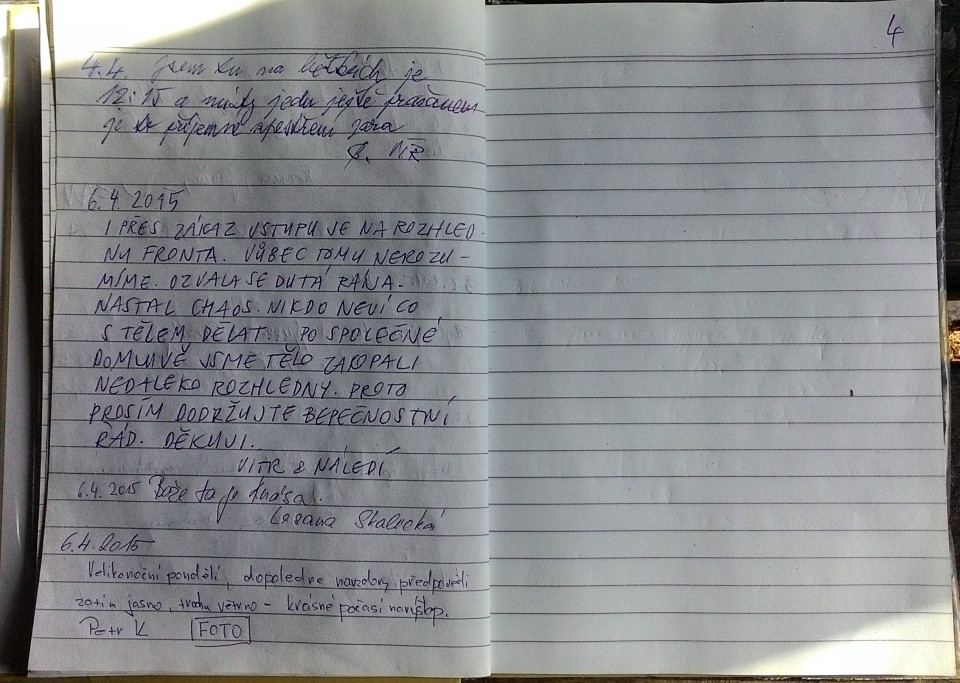 4.4. Jsem tu na je
12:15 a nikdy jedu ještě
je příjemné zpestření jara
6.4.2015
I PŘES ZÁKAZ VSTUPU JE NA ROZHLED-
NU FRONTA. VŮBEC TOMU NEROZU-
MÍME. OZVALA SE DUTÁ RÁNA.
NASTAL CHAOS. NIKDO NEVÍ CO
S TĚLEM DĚLAT. PO SPOLEČNÉ
DOMLUVĚ JSME TĚLO ZAKOPALI
NEDALEKO ROZHLEDNY. PROTO
PROSÍM DODRŽUJTE BEPEČNOSTNÍ
ŘÁD. DĚKUJI.
VÍTR & NÁLEDÍ
6.4.2015 Bože ta je krása.
Skalická
6.4.2015
Velikonoční pondělí, dopoledne navzdory předpovědi
zatím jasno, trochu větrno - krásné počasí na výstup.
Petr K FOTO
4